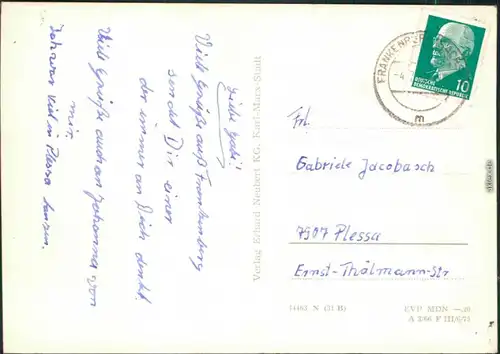 Liebe Gabi!
Viele Grüße aus Frankenberg
sendet Dir einer
der immer an Dich denkt.
Viele Grüße auch an Johanna von
mir.
Ich war viel in Plessa tanzen.
Verlag Erhard Neubert KG, Karl-Marx-Stadt
FRANKENBERG
m
DEUTSCHE
DEMOKRATISCHE REPUBLIK
10
Frl.
Gabriele Jacobasch
7907 Plessa
Ernst-Thälmann-Str
14463 N (31 B)
EVP MDN —,20
A 2/66 F III/6/71